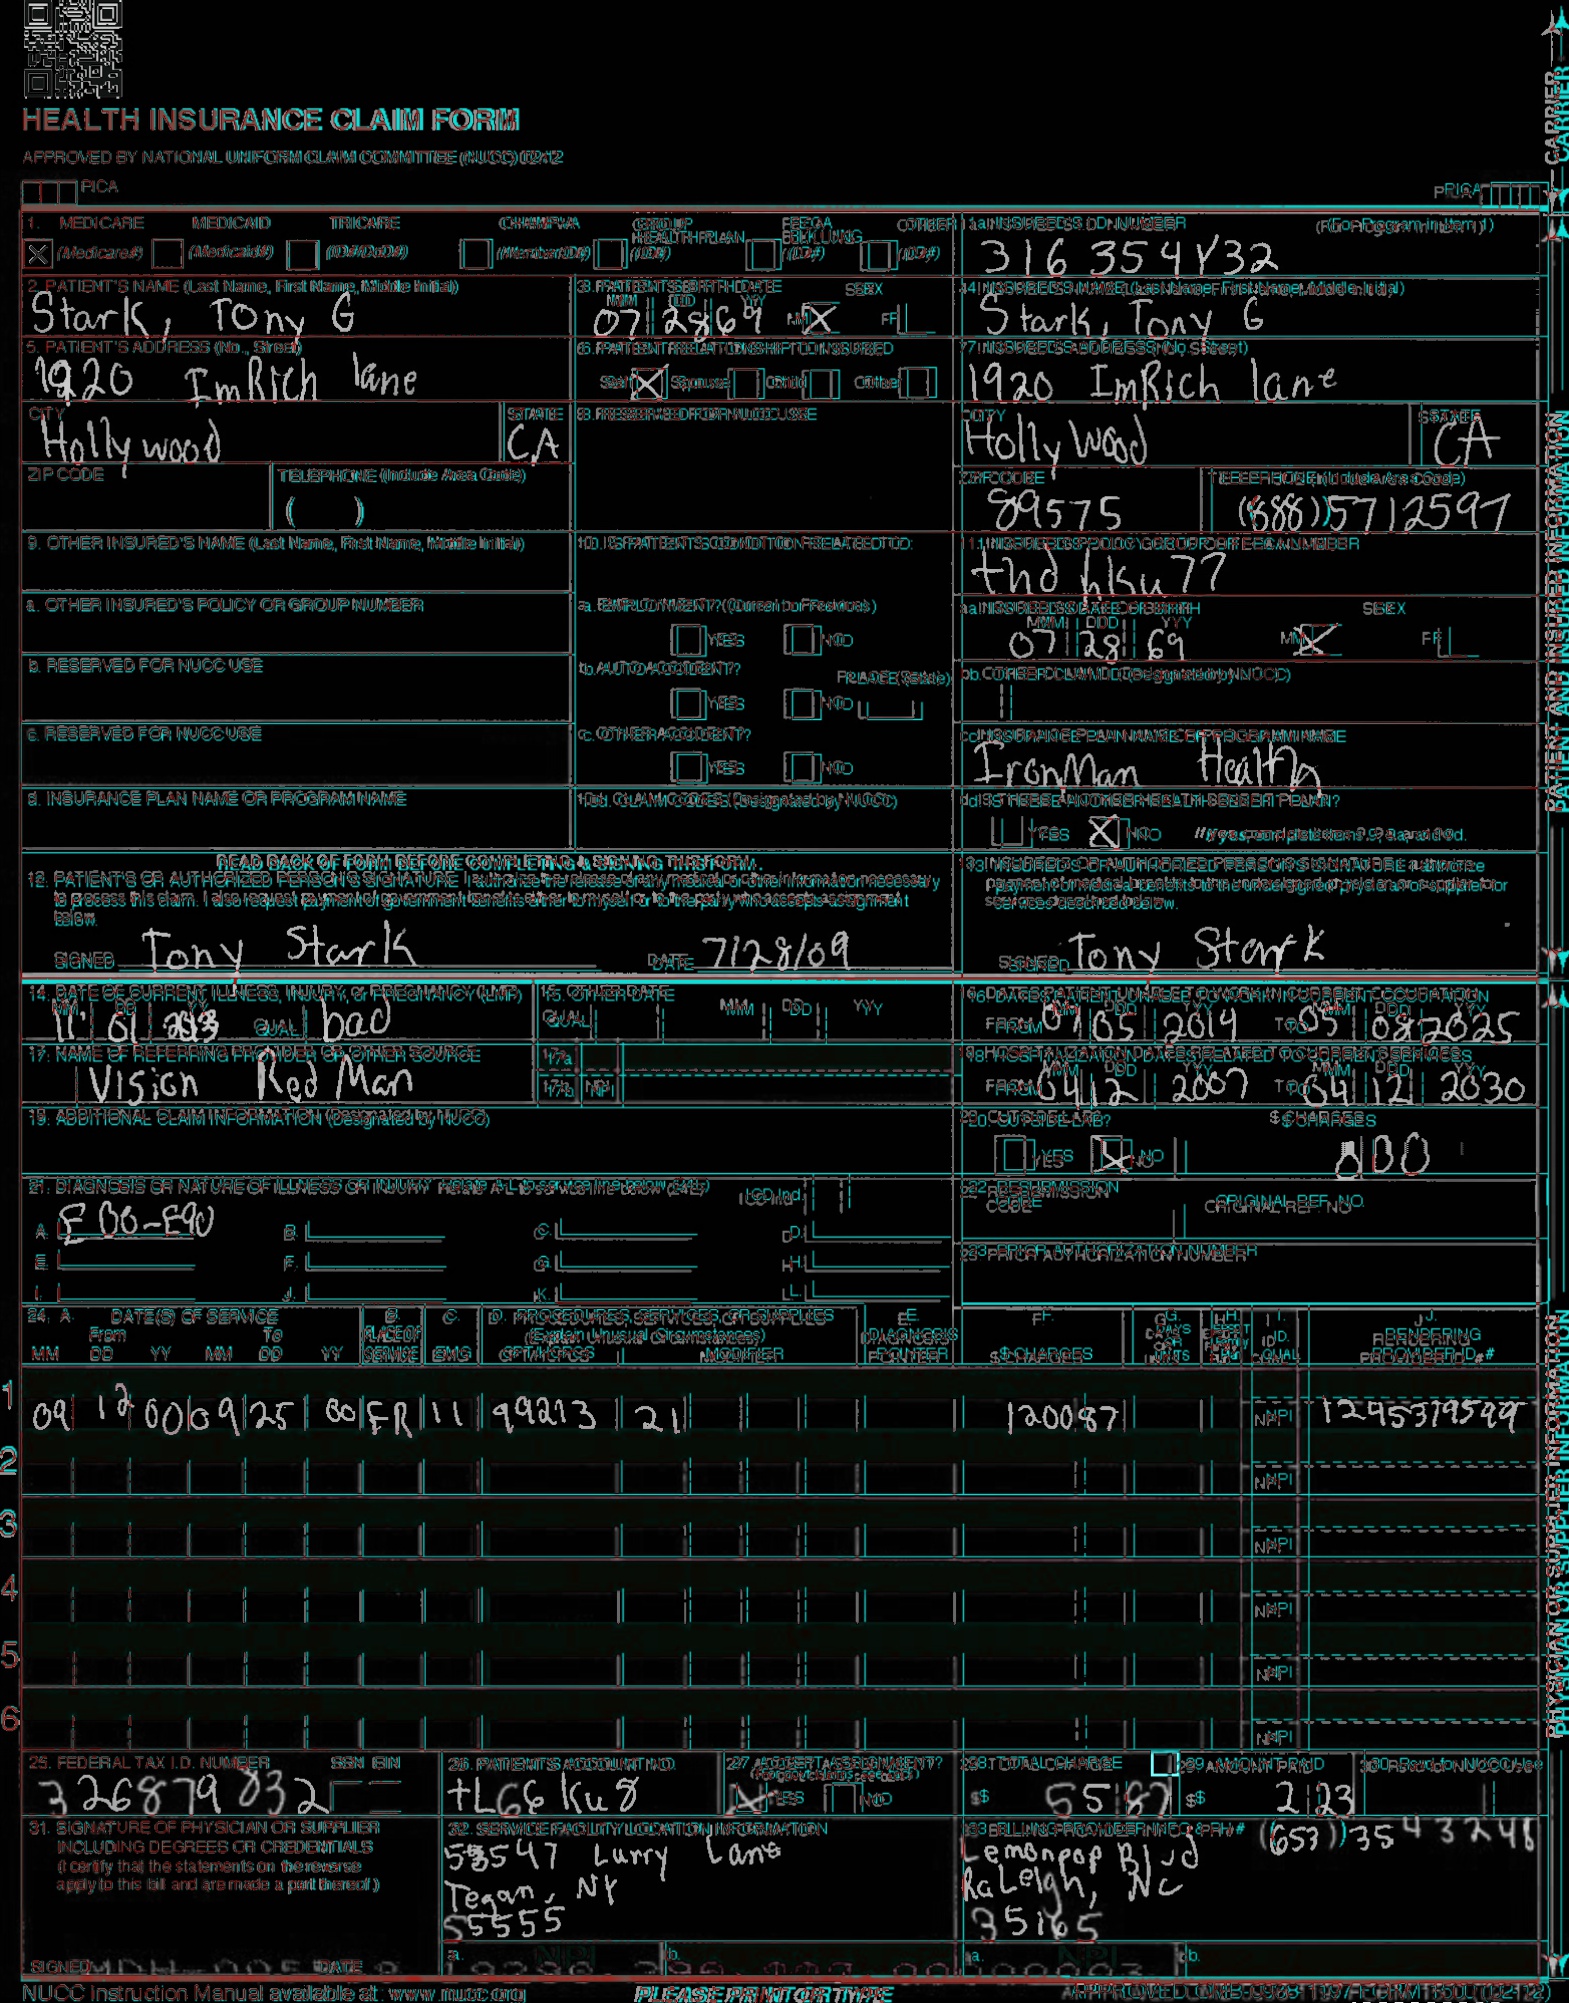 HEALTH INSURANCE CLAIM FORM
APPROVED BY NATIONAL UNIFORM CLAIM COMMITTEE (NUCC) 02/12
PICA
PICA
CARRIER
1. MEDICARE MEDICAID TRICARE CHAMPVA GROUP HEALTH PLAN FECA BLK LUNG OTHER
(Medicare#) (Medicaid#) (ID#/DoD#) (Member ID#) (ID#) (ID#) (ID#)
1a. INSURED'S I.D. NUMBER (For Program in Item 1)
316 354Y32
2. PATIENT'S NAME (Last Name, First Name, Middle Initial)
Stark, Tony G
3. PATIENT'S BIRTH DATE SEX
MM DD YY
07 28 69 M X F
4. INSURED'S NAME (Last Name, First Name, Middle Initial)
Stark, Tony G
5. PATIENT'S ADDRESS (No., Street)
1920 ImRich lane
6. PATIENT RELATIONSHIP TO INSURED
Self X Spouse Child Other
7. INSURED'S ADDRESS (No., Street)
1920 ImRich lane
CITY STATE
Hollywood CA
8. RESERVED FOR NUCC USE
CITY STATE
Hollywood CA
ZIP CODE TELEPHONE (Include Area Code)
( )
ZIP CODE TELEPHONE (Include Area Code)
89575 (888) 5712597
9. OTHER INSURED'S NAME (Last Name, First Name, Middle Initial)
10. IS PATIENT'S CONDITION RELATED TO:
11. INSURED'S POLICY GROUP OR FECA NUMBER
thd hksu77
a. OTHER INSURED'S POLICY OR GROUP NUMBER
a. EMPLOYMENT? (Current or Previous)
YES NO
a. INSURED'S DATE OF BIRTH SEX
MM DD YY
07 28 69 M X F
b. RESERVED FOR NUCC USE
b. AUTO ACCIDENT? PLACE (State)
YES NO
b. OTHER CLAIM ID (Designated by NUCC)
c. RESERVED FOR NUCC USE
c. OTHER ACCIDENT?
YES NO
c. INSURANCE PLAN NAME OR PROGRAM NAME
IronMan Health
d. INSURANCE PLAN NAME OR PROGRAM NAME
10d. CLAIM CODES (Designated by NUCC)
d. IS THERE ANOTHER HEALTH BENEFIT PLAN?
YES X NO If yes, complete items 9, 9a, and 9d.
READ BACK OF FORM BEFORE COMPLETING & SIGNING THIS FORM.
12. PATIENT'S OR AUTHORIZED PERSON'S SIGNATURE I authorize the release of any medical or other information necessary
to process this claim. I also request payment of government benefits either to myself or to the party who accepts assignment
below.
SIGNED Tony Stark DATE 7/28/09
13. INSURED'S OR AUTHORIZED PERSON'S SIGNATURE I authorize
payment of medical benefits to the undersigned physician or supplier for
services described below.
SIGNED Tony Stark
PATIENT AND INSURED INFORMATION
14. DATE OF CURRENT ILLNESS, INJURY, or PREGNANCY (LMP)
MM DD YY
11 01 2013 QUAL. bad
15. OTHER DATE
QUAL. MM DD YY
16. DATES PATIENT UNABLE TO WORK IN CURRENT OCCUPATION
MM DD YY MM DD YY
FROM 05 2019 TO 05 08 2025
17. NAME OF REFERRING PROVIDER OR OTHER SOURCE
Vision Red Man
17a.
17b. NPI
18. HOSPITALIZATION DATES RELATED TO CURRENT SERVICES
MM DD YY MM DD YY
FROM 04 12 2007 TO 04 12 2030
19. ADDITIONAL CLAIM INFORMATION (Designated by NUCC)
20. OUTSIDE LAB? $ CHARGES
YES X NO 000
21. DIAGNOSIS OR NATURE OF ILLNESS OR INJURY Relate A-L to service line below (24E) ICD Ind.
A. E00-E90 B. C. D.
E. F. G. H.
I. J. K. L.
22. RESUBMISSION CODE ORIGINAL REF. NO.
23. PRIOR AUTHORIZATION NUMBER
24. A. DATE(S) OF SERVICE B. C. D. PROCEDURES, SERVICES, OR SUPPLIES E. F. G. H. I. J.
From To PLACE OF (Explain Unusual Circumstances) DIAGNOSIS DAYS OR UNITS ID. RENDERING
MM DD YY MM DD YY SERVICE EMG CPT/HCPCS MODIFIER POINTER $ CHARGES QUAL. PROVIDER ID. #
1
09 12 00 09 25 00 ER 11 99213 21 120087 NPI 1295379599
2
NPI
3
NPI
4
NPI
5
NPI
6
NPI
25. FEDERAL TAX I.D. NUMBER SSN EIN
326879832
26. PATIENT'S ACCOUNT NO.
27. ACCEPT ASSIGNMENT?
(For govt. claims, see back)
X YES NO
28. TOTAL CHARGE
$ 55 87
29. AMOUNT PAID
$ 2 23
30. Rsvd for NUCC Use
31. SIGNATURE OF PHYSICIAN OR SUPPLIER
INCLUDING DEGREES OR CREDENTIALS
(I certify that the statements on the reverse
apply to this bill and are made a part thereof.)
SIGNED DATE
32. SERVICE FACILITY LOCATION INFORMATION
Lurry Lane
Tegan, NY
55555
a. NPI b.
33. BILLING PROVIDER INFO & PH # (653) 3543248
Lemonpop Blvd
Raleigh, NC
35165
a. NPI b.
PHYSICIAN OR SUPPLIER INFORMATION
NUCC Instruction Manual available at: www.nucc.org
PLEASE PRINT OR TYPE